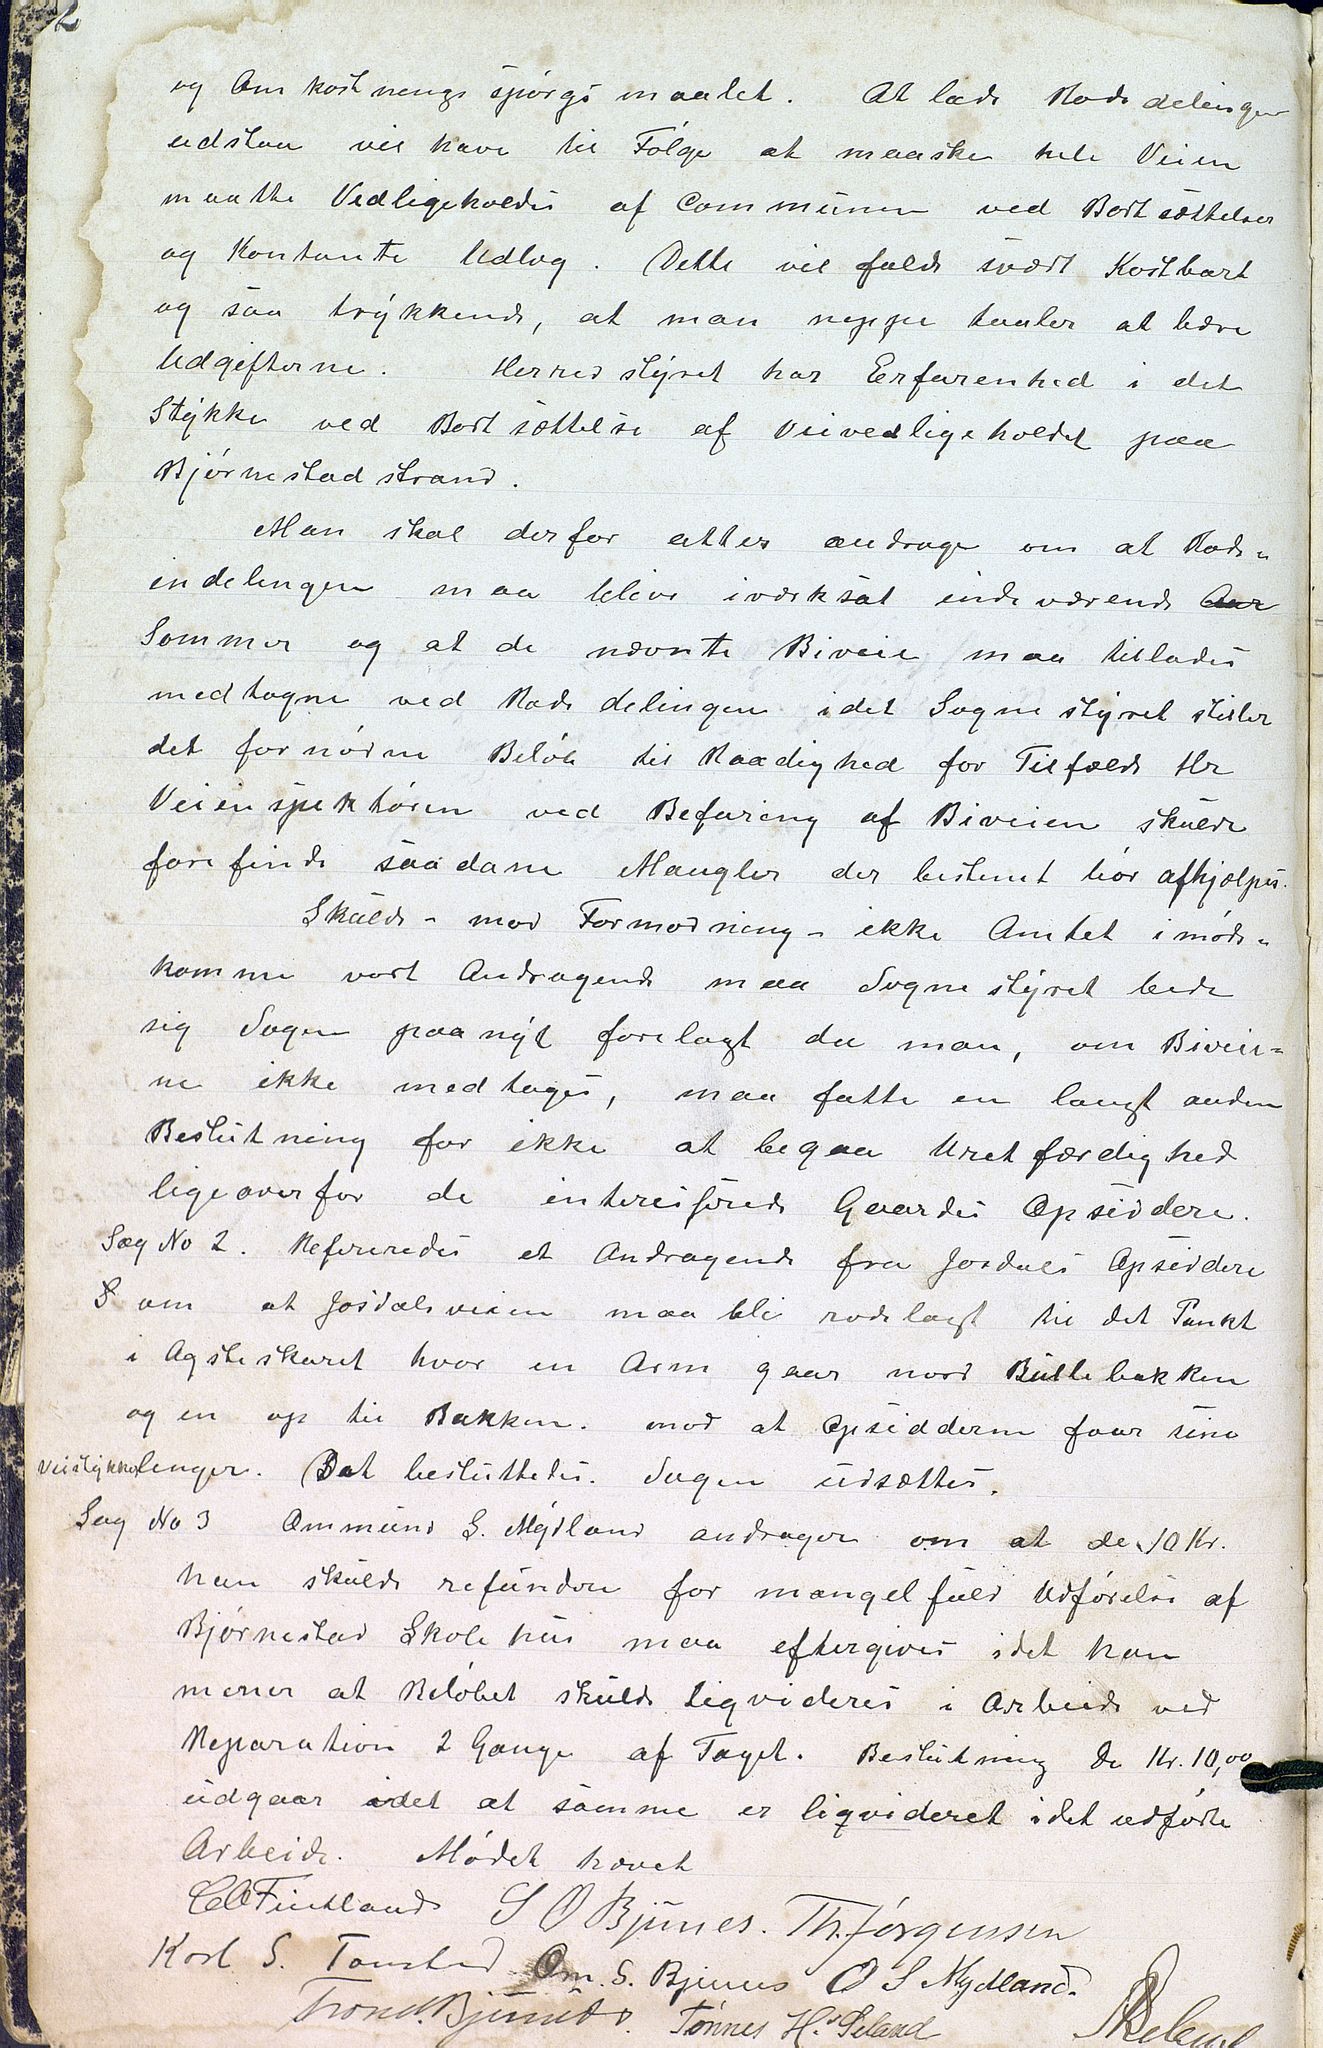 2
og Omkostningsspørgsmaalet. At lade Rodedelingen
udstaa vil have til Følge at maaske hele Veien
maatte Vedligeholdes af Communen ved Bortsættelser
og Kontante Udlæg. Dette vil falde svært Kostbart
og saa trykkende, at man neppe taaler at bære
Udgifterne. Herredstyret har Erfarenhed i det
Stykke ved Bortsættelse af Veivedligeholdet paa
Bjørnestadstrand.
Man skal derfor atter andrage om at Rode-
indelingen maa blive iværksat indeværende Aar
Sommer og at de nævnte Biveie maa tillades
medtagne ved Rodedelingen idet Sognestyret stiller
det fornødne Beløb til Raadighed for Tilfælde Hr
Veiinspektøren ved Befaring af Biveien skulde
forefinde saadane Mangler der bestemt bør afhjælpes.
Skulde - mod Formodning - ikke Amtet imøde-
komme vort Andragende maa Sognestyret bede
sig Sagen paanyt forelagt da man, om Biveie-
ne ikke medtages, maa fatte en langt anden
Beslutning for ikke at begaa Uretfærdighed
ligeoverfor de interesserede Gaardes Opsiddere.
Sag No 2. Refereredes et Andragende fra Josdals Opsiddere
om at Josdalsveien maa bli rodelagt til det Punkt
i Agsteskaret hvor en Arm gaar mod Bullebakken
og en op til Bakken. mod at Opsidderne faar sine
Veistykkelenger. Det besluttedes. Sagen udsættes.
Sag No 3 Ommund S. Mydland andrager om at de 10 Kr.
han skulde refundere for mangelfuld Udførelse af
Bjørnestad Skolehus maa eftergives idet han
mener at Beløbet skulde liqvideres i Arbeide ved
Reparation 2 Gange af Taget. Beslutning de Kr. 10,00
udgaar idet at somme er liqvideret idet udførte
Arbeide. Mødet hævet
C O Fintland S O Bjunes. Th. Jørgensen
Karl S. Tonstad Om. S. Bjunes O S Mydland.
Trond. Bjunes. Tønnes H. Seland